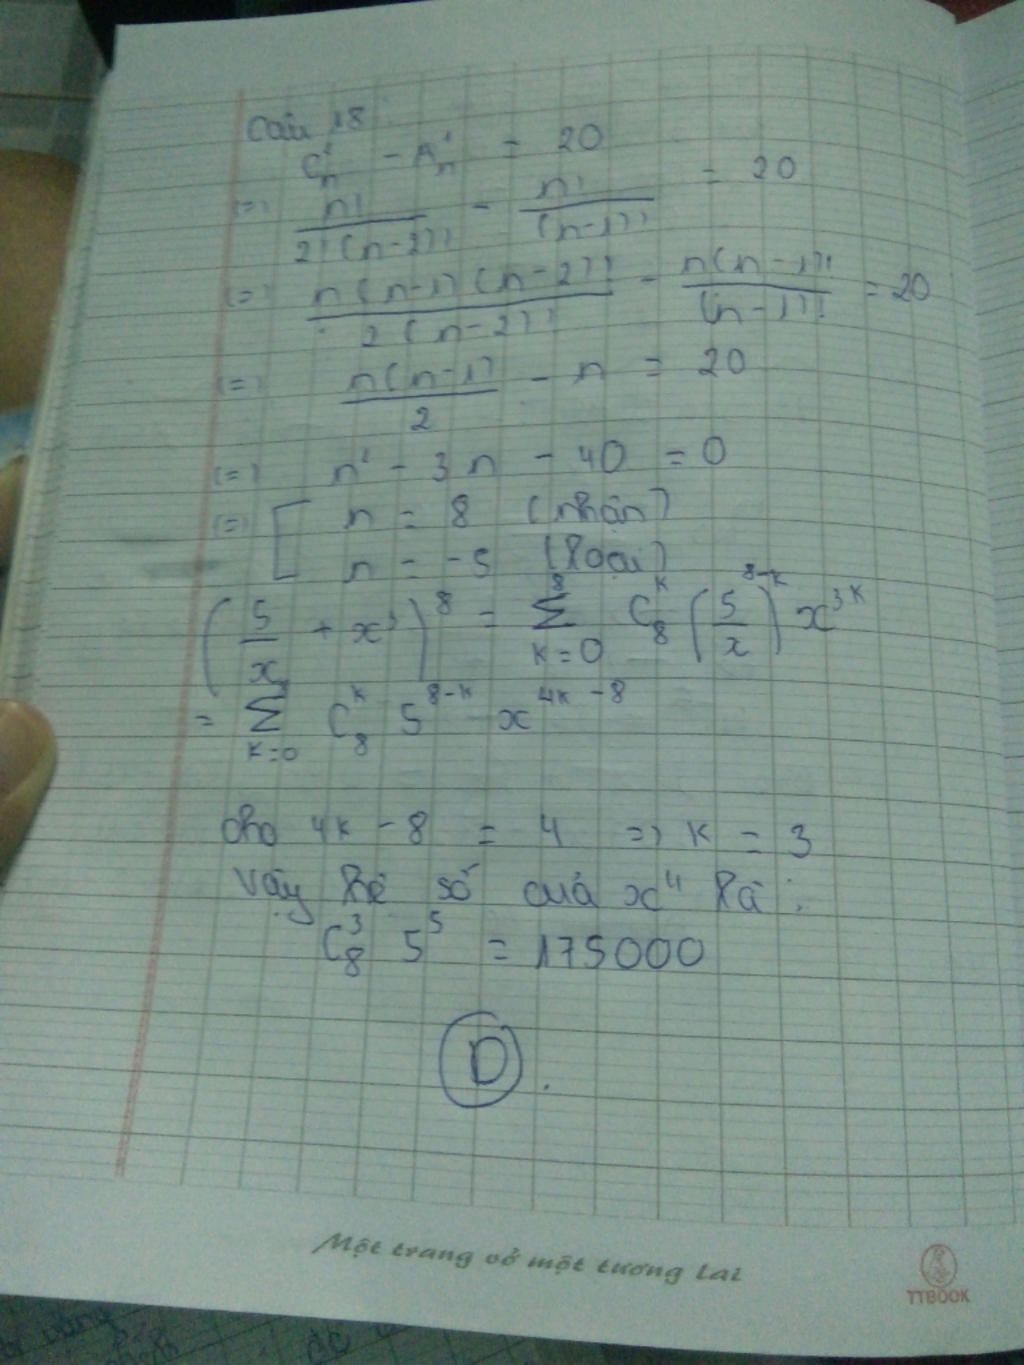 Câu 18
C²ₙ - A¹ₙ = 20
(=) n! / 2!(n-2)! - n! / (n-1)! = 20
(=) n(n-1)(n-2)! / 2(n-2)! - n(n-1)! / (n-1)! = 20
(=) n(n-1) / 2 - n = 20
(=) n² - 3n - 40 = 0
(=) [ n = 8 (nhận)
n = -5 (loại)
(5/x + x³)⁸ = Σ⁸ₖ₌₀ Cᵏ₈ (5/x)⁸⁻ᵏ x³ᵏ
= Σ⁸ₖ₌₀ Cᵏ₈ 5⁸⁻ᵏ x⁴ᵏ⁻⁸
cho 4k - 8 = 4 =) k = 3
Vậy hệ số của x⁴ là:
C³₈ 5⁵ = 175000
D.
Một trang vở một tương lai
TTBOOK